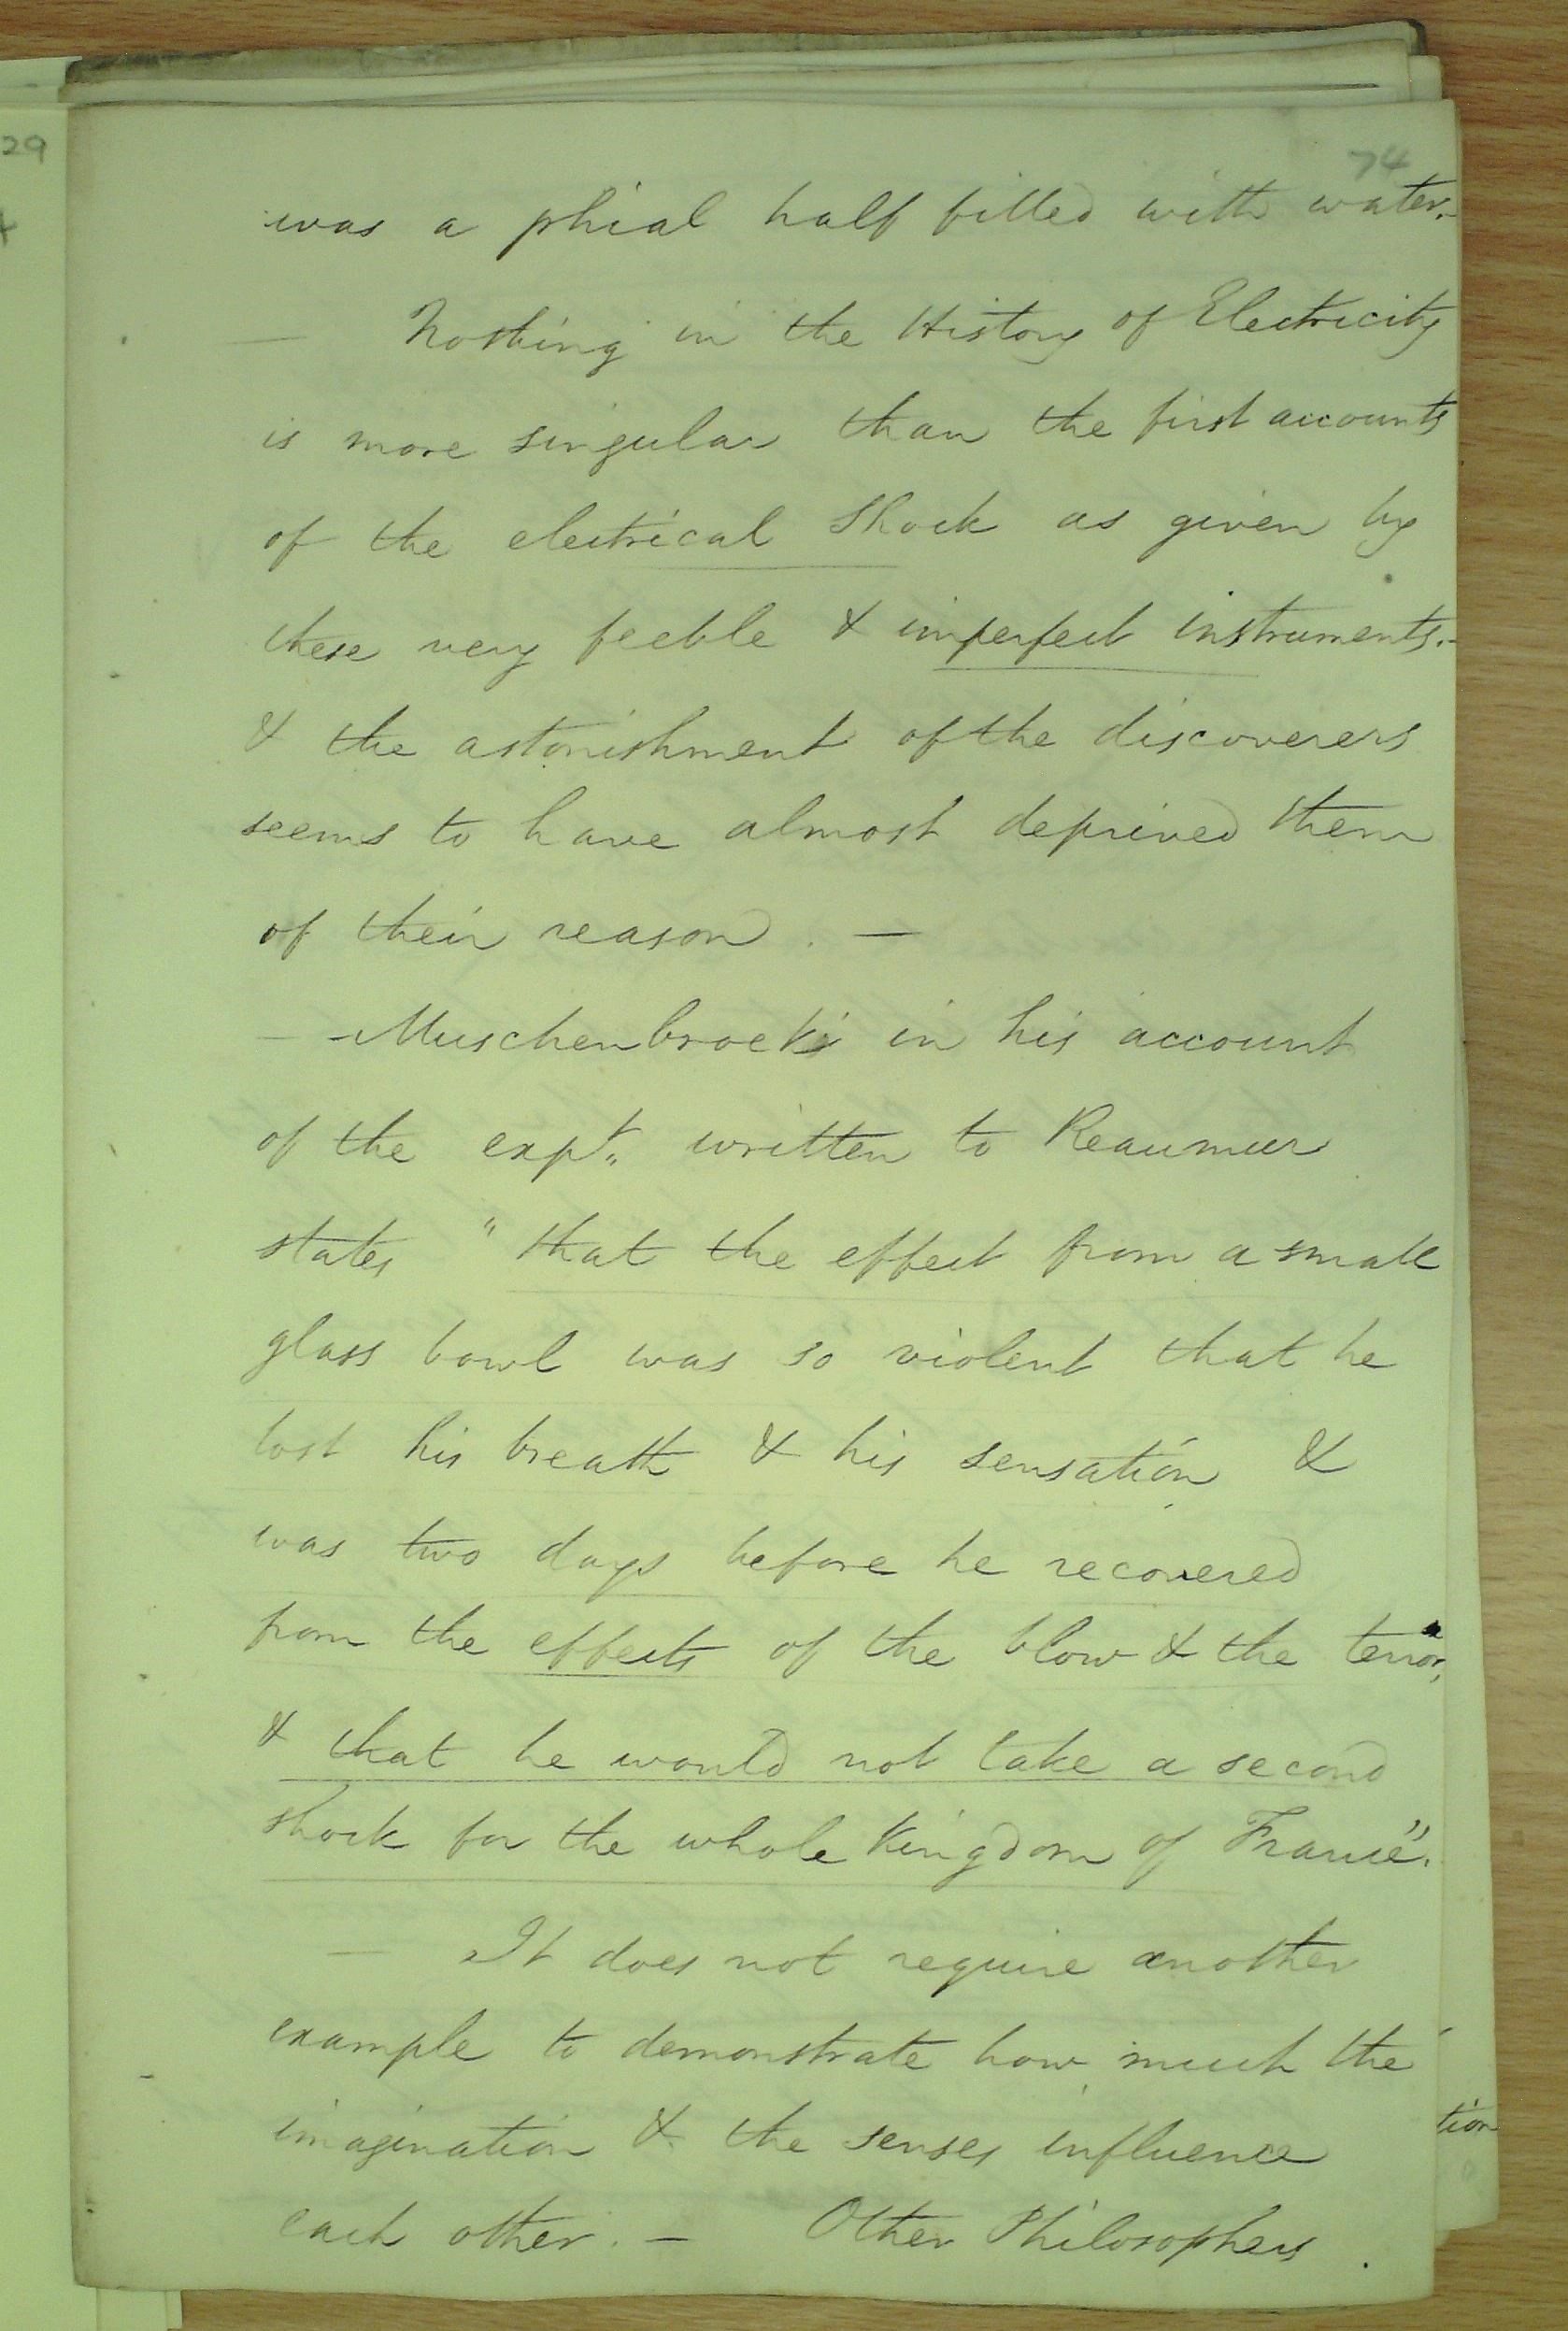 29
74
was a phial half filled with water.-
— Nothing in the History of Electricity
is more singular than the first accounts
of the electrical shock as given by
these very feeble & imperfect instruments.-
& the astonishment of the discoverers
seems to have almost deprived them
of their reason. —
— - Muschenbroek's in his account
of the expt. written to Reaumur
states "that the effect from a small
glass bowl was so violent that he
lost his breath & his sensation &
was two days before he recovered
from the effects of the blow & the terror,
& that he would not take a second
shock for the whole kingdom of France".
— It does not require another
example to demonstrate how much the
imagination & the senses influence
tion
each other. — Other Philosophers